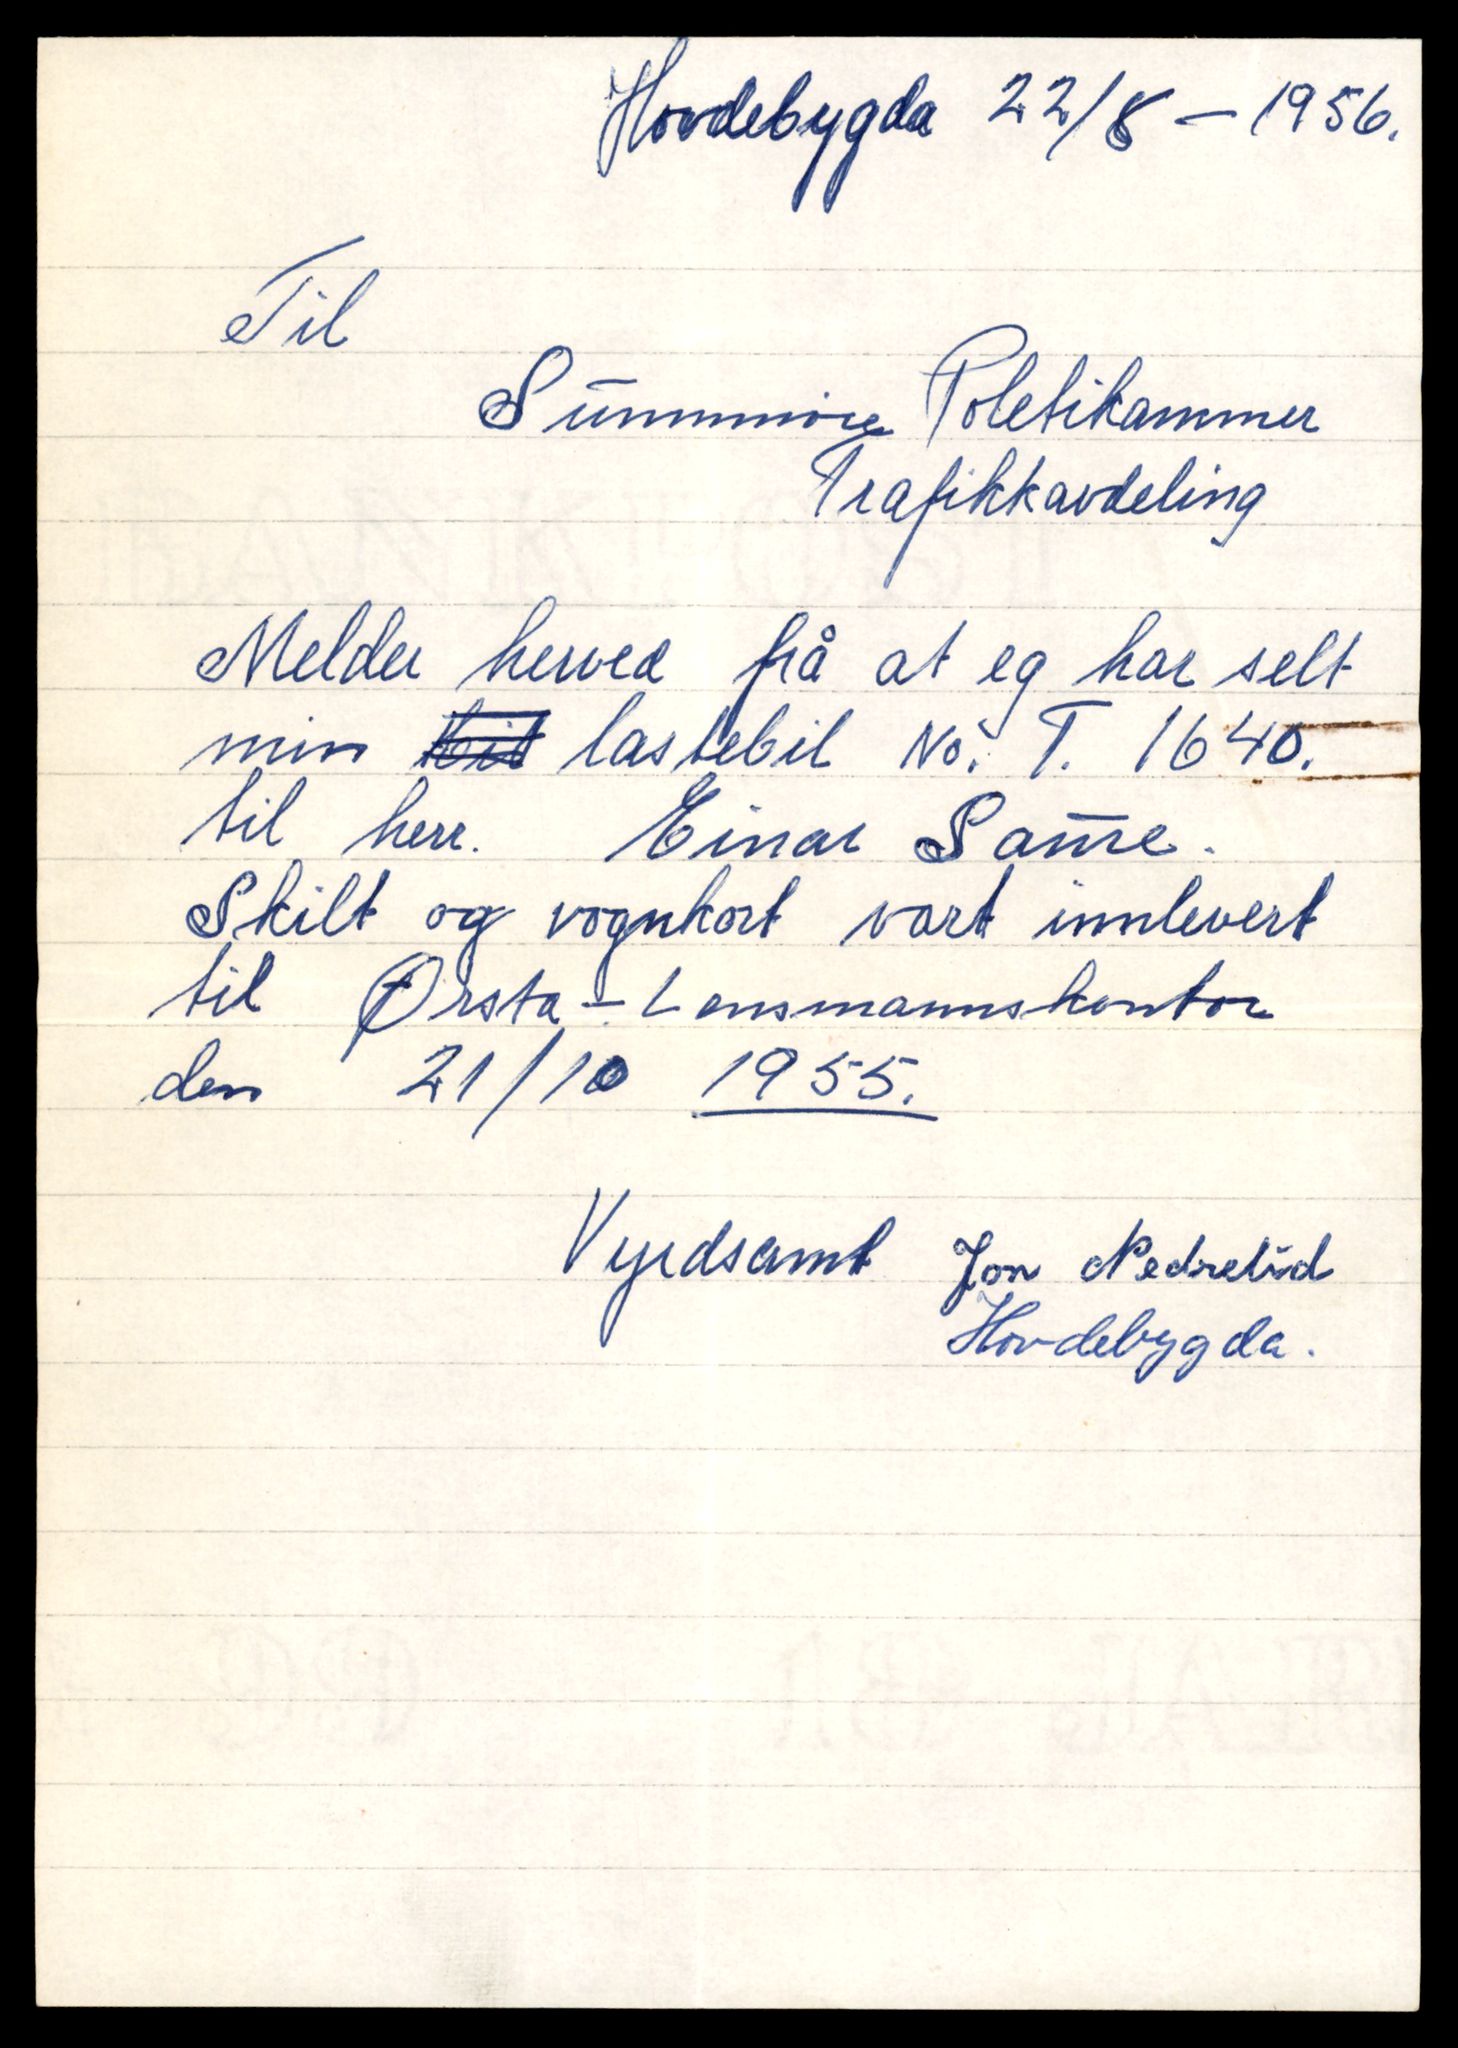 Hovdebygda 22/8 – 1956.
Til
Sunnmøre Poletikammer
Trafikkavdeling
Melder herved frå at eg har selt
min bil lastebil No. T. 1640.
til herr. Einar
Skilt og vognkort vart innlevert
til Ørsta – Lensmannskontor
den 21/10 1955.
Vyrdsamt Jon Nedrelid
Hovdebygda.